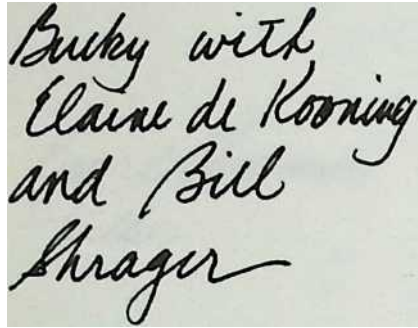 Bucky with
Elaine de Kooning
and Bill
Shrager